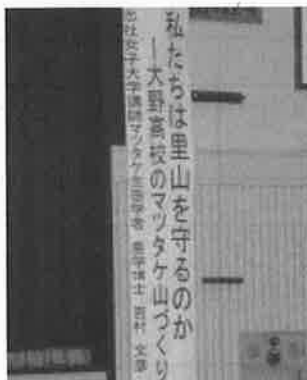 私たちは里山を守るのか
―大野高校のマツタケ山づくり
志社女子大学講師マツタケ生態学者 農学博士 吉村 文彦